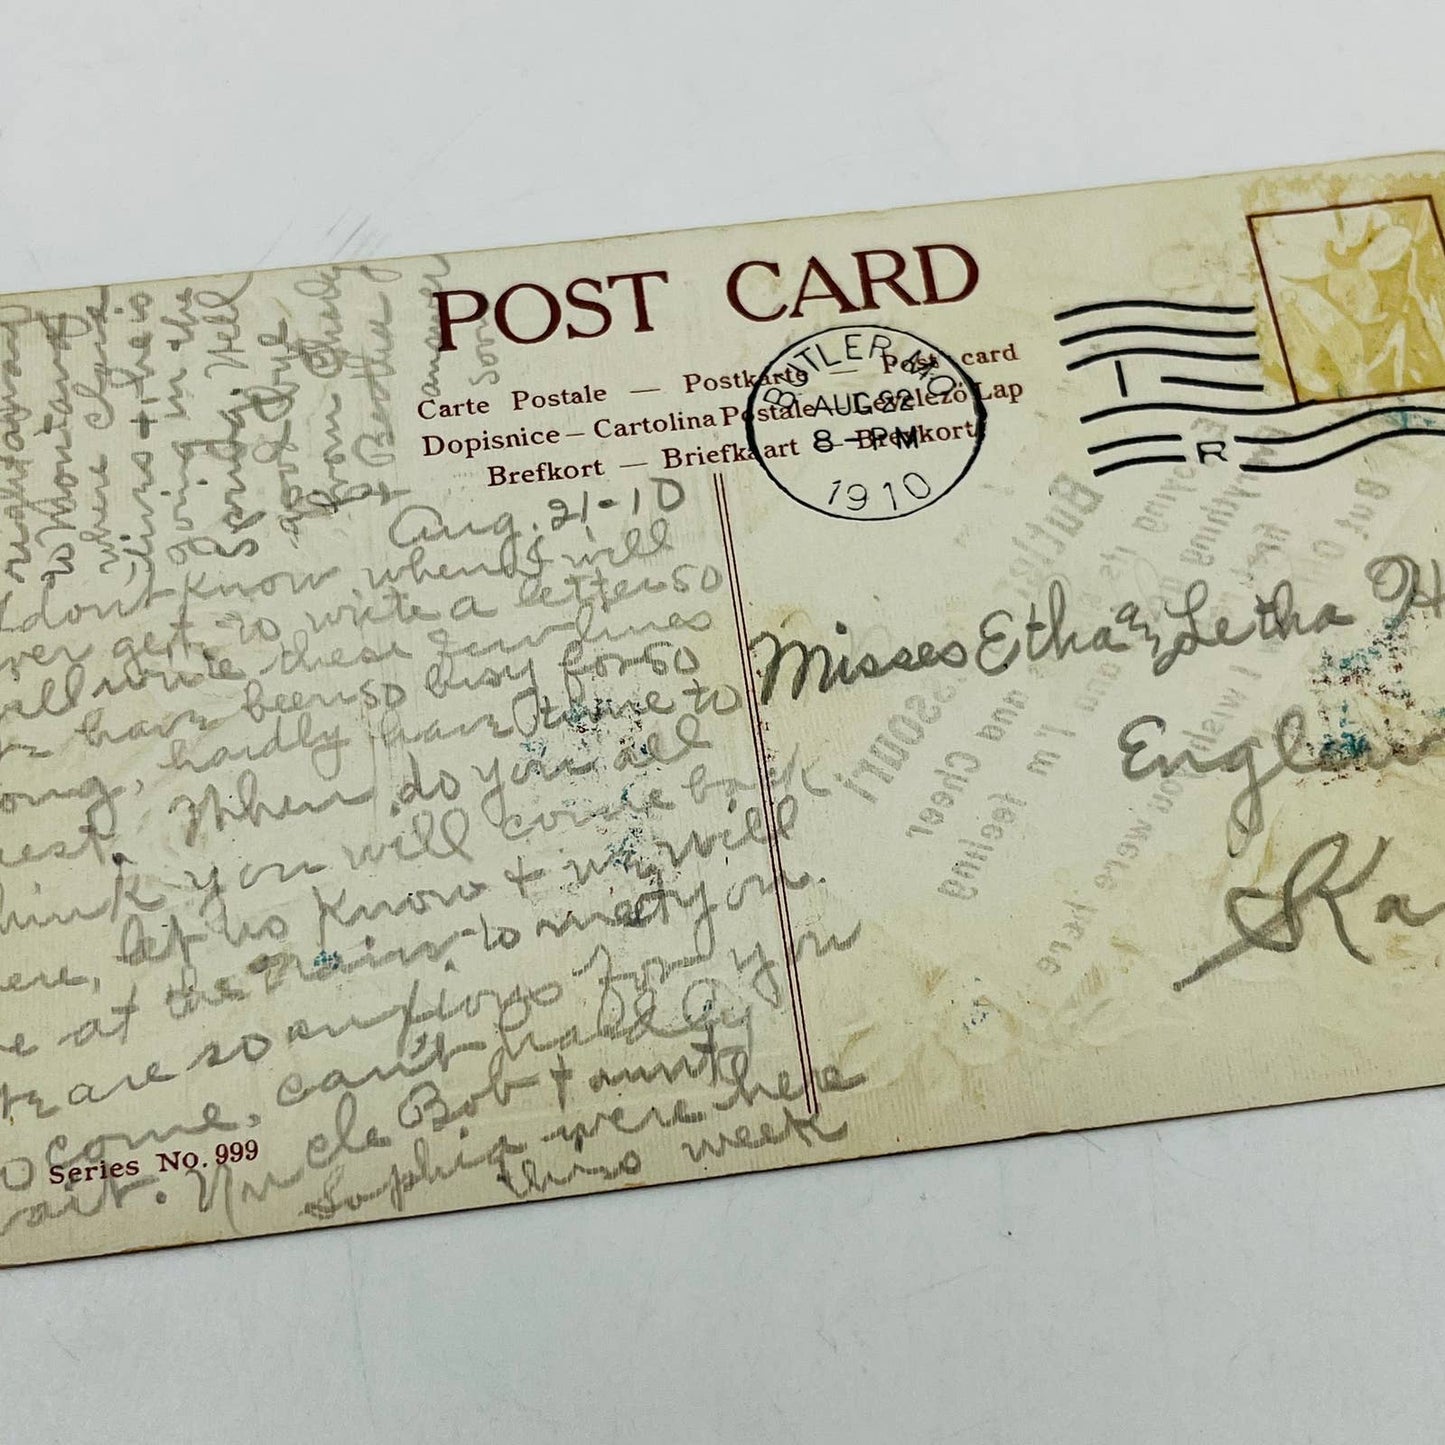 POST CARD
Carte Postale — Postkarte — Post card
Dopisnice — Cartolina Postale — Levelező Lap
Brefkort — Briefkaart — Brevkort
BUTLER MO.
AUG 22
8 - PM
1910
1
R
Aug. 21-10
dont know when I will
ver get to write a letter so
ill write these few lines
have been so busy for so
ong, hardly have time to
rest. When do you all
hink you will come back
ere, let us know + we will
e at the train to meet you.
are so anxious for you
o come, can't hardly
ait. Uncle Bob + aunt
Sophia were here
this week
right away
to Montana
where Charlie
lives + he is
going in the
Well
good bye
from Charly
+ Bertha
answer
soon
Series No. 999
Misses Etha & Letha H
Englew
Ka
Butler
Missouri
But O
I wish you were here
Everything
and Cheer
I'm feeling